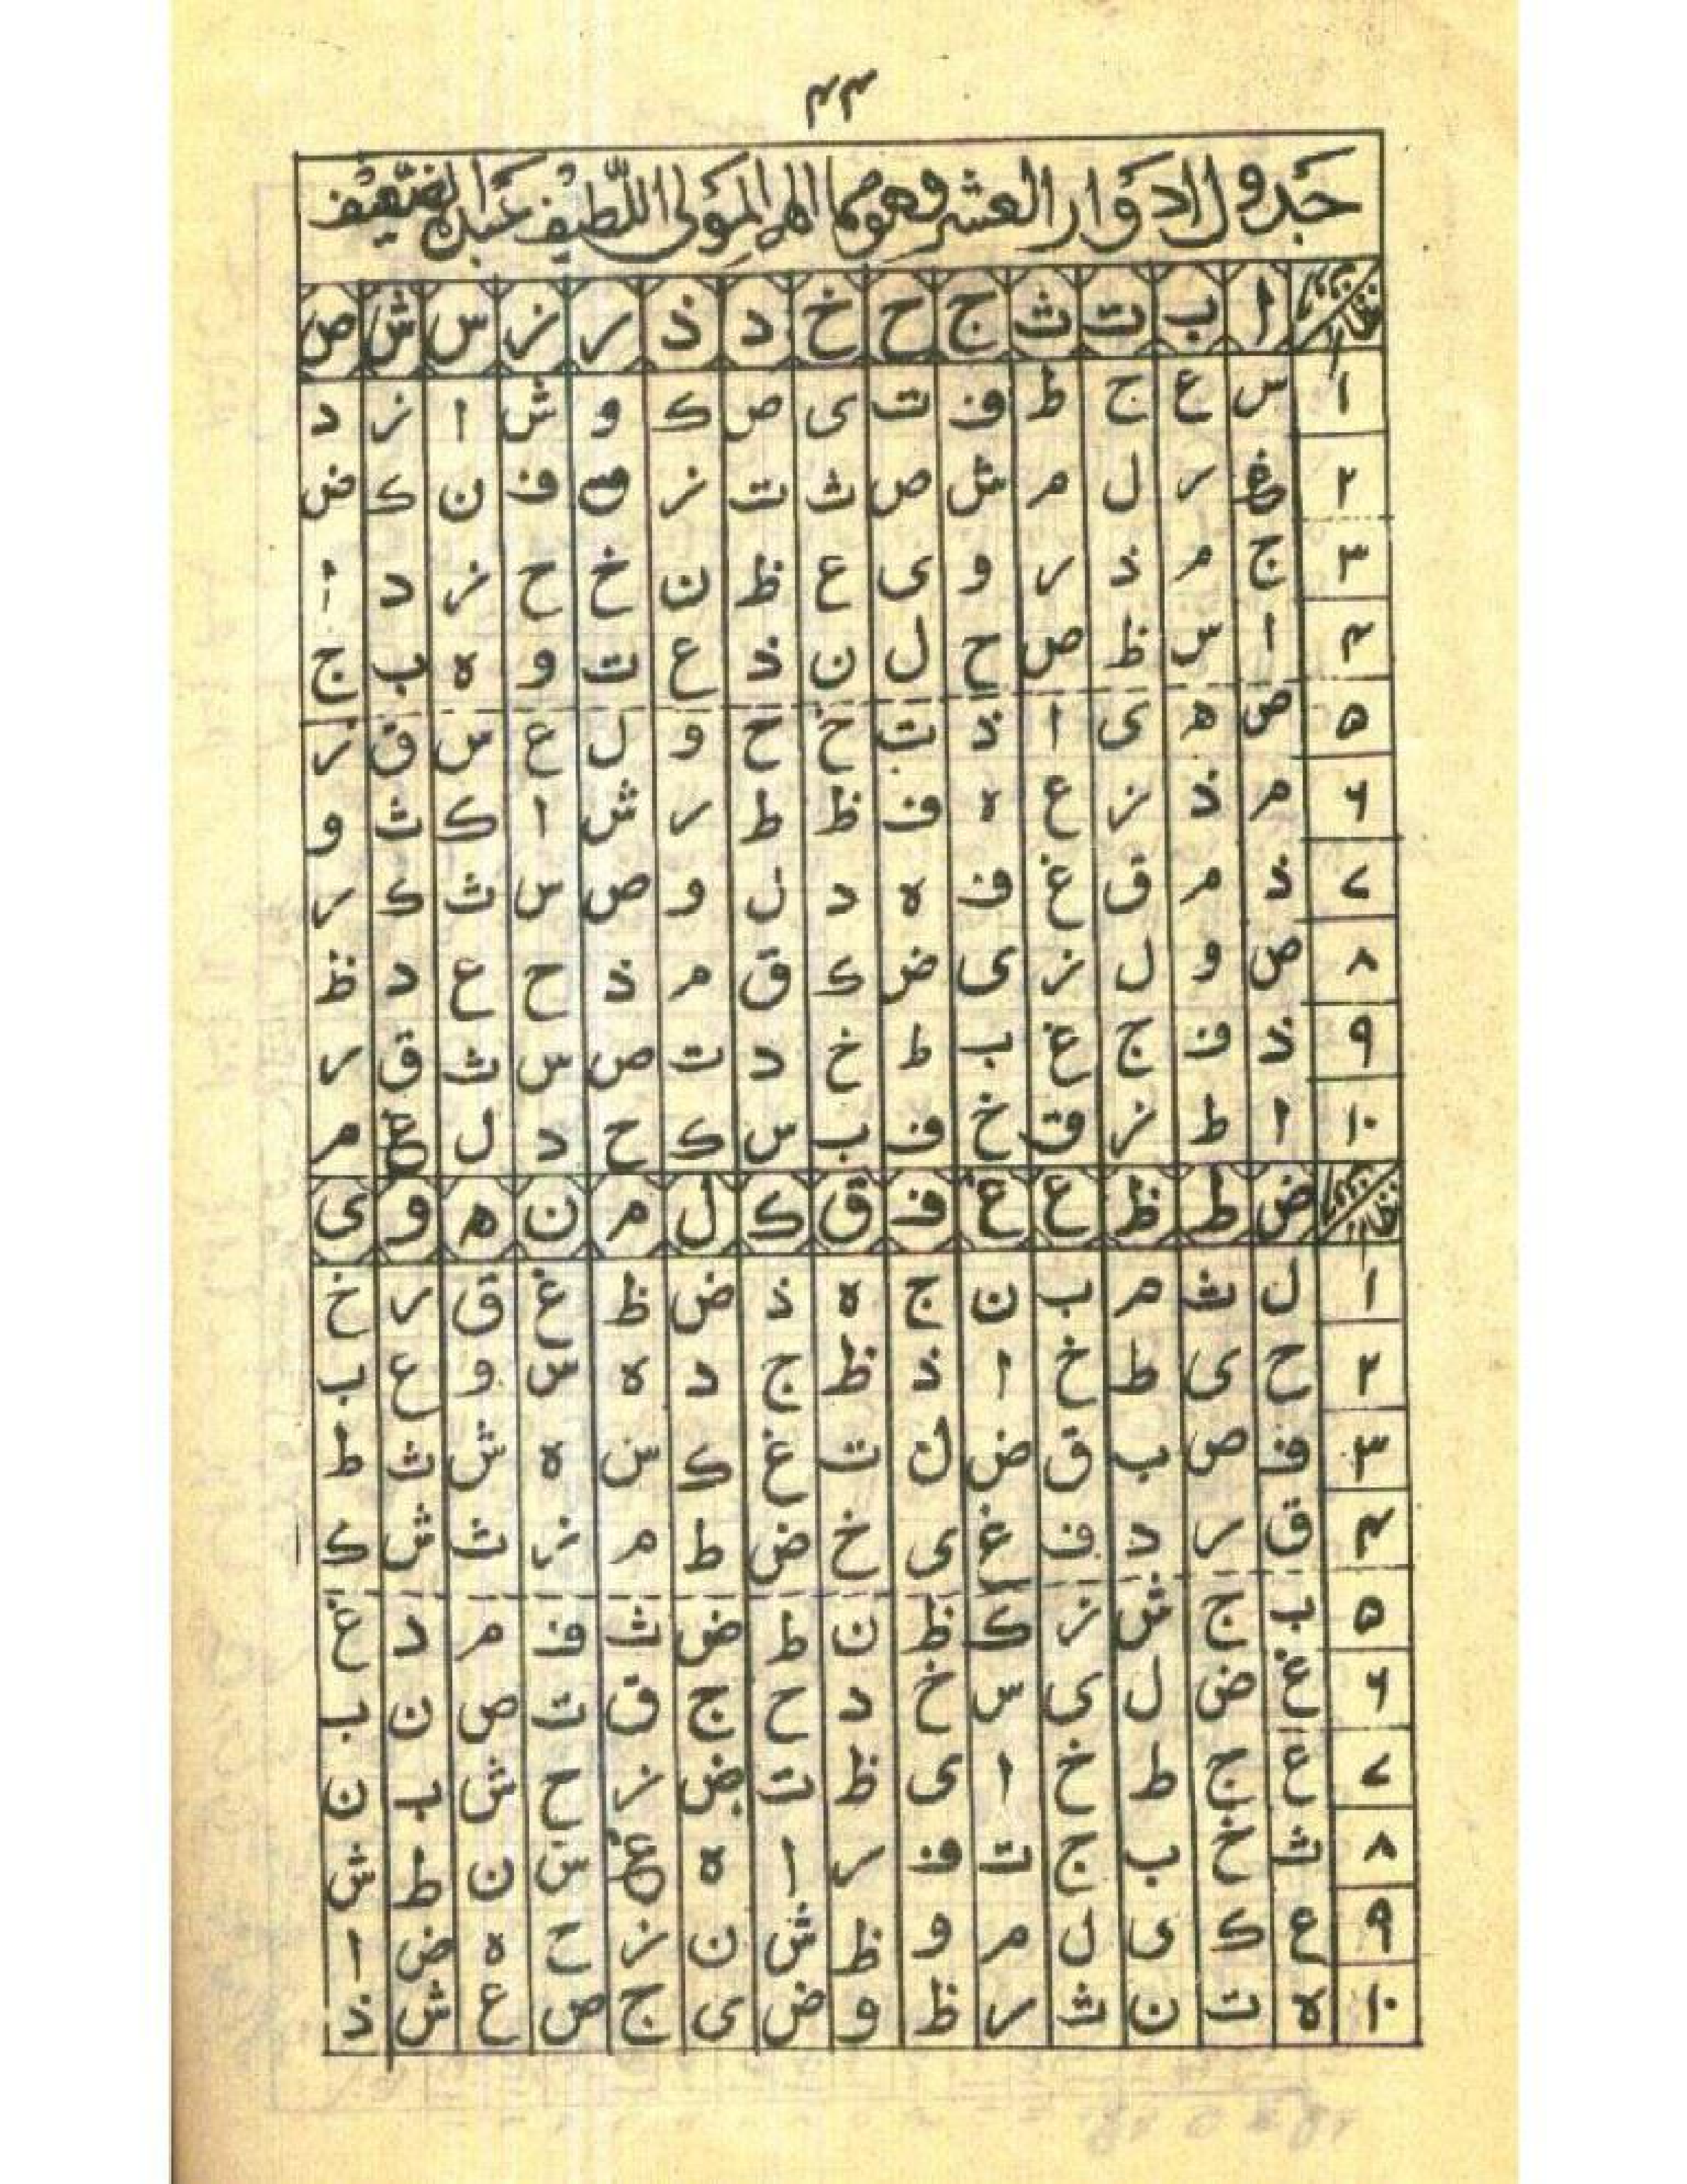 ٤٤
جدول الادوار العشر وهو مما الهم المولى اللطيف عبده الضعيف
ا ب ت ث ج ح خ د ذ ر ز س ش ص
١ س ع ج ط ف ت ى ص ك و ش ا ز د
٢ غ ر ل م ش ص ث ت ز ق ف ن ك ض
٣ ج م ذ ر و ى ع ظ ن خ ح ز د ا
٤ ا س ظ ص ح ل ن ذ ع ت و ه ب ج
٥ ص ه ى ا ذ ت خ ح و ل ع س ق ز
٦ م ذ ز ع ه ف ظ ط ر ش ا ك ث و
٧ ذ م ق غ ف ه د ل و ص س ث ك ر
٨ ص و ل ز ى ض ك ق م ذ ح ع د ظ
٩ ذ ف ج غ ب ط خ د ت ص س ث ق ر
١٠ ا ط ز ق خ ف ب س ك ح د ل غ م
ض ط ظ ع غ ف ق ك ل م ن ه و ى
١ ل ث م ب ن ج ه ذ ض ظ غ ق ر خ
٢ ح ى ط خ ا ذ ظ ج د ه س و ع ب
٣ ف ص ب ق ض ل ت غ ك س ه ش ث ط
٤ ق ر د ف غ ى خ ض ط م ز ث ش ك
٥ ب ج ش ز ك ظ ن ط ض ث ف م د غ
٦ غ ض ل ى س خ د ح ج ق ت ص ن ب
٧ ع ج ط خ ا ى ظ ت ض ز ح ش ب ن
٨ ث خ ب ج ت ف ر ا ه غ س ن ط ش
٩ ع ك ى ل م و ظ ش ن ز ح ه ض ا
١٠ ه ت ن ث ر ظ و ض ى ج ص ع ش ذ